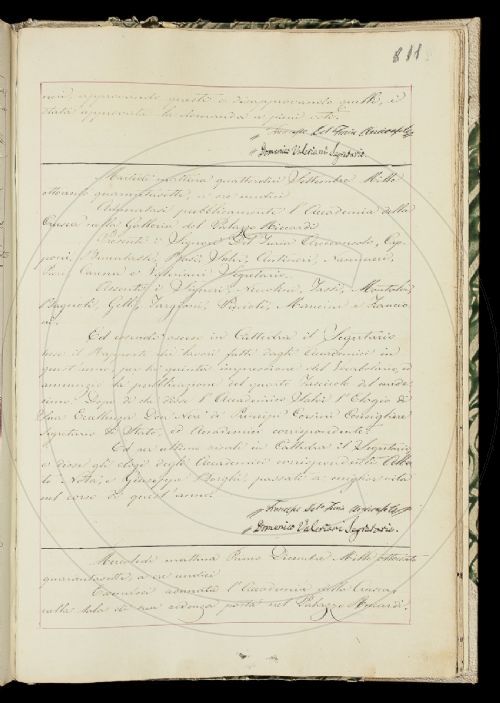 811
noni, approvando questi e disapprovando quelli, è
stata approvata la domanda a pieni voti.
Francesco Del Furia Arciconsolo
Domenico Valeriani Segretario.
Martedì mattina quattordici Settembre Mille
ottocento quarantasette, a ore undici
Adunatasi pubblicamente l'Accademia della
Crusca nella Galleria del Palazzo Riccardi
Presenti i Signori Del Furia Arciconsolo, Cap-
poni, Becchi, Valeri,
Puri, Casoni e Valeriani Segretario.
Assenti i Signori Niccolini, Montalvi,
Bagnoli, Gelli, Targioni, Mancini e Zannoni
Ed essendo asceso in Cattedra il Segretario
lesse il Rapporto dei lavori fatti dagli Accademici in
quest'anno per la quinta impressione del Vocabolario, ed
annunziò la pubblicazione del quarto fascicolo del mede-
simo. Dopo di che disse l'Accademico l'Elogio di
Sua Eccellenza Don Neri de' Principi Corsini Consigliere
Segretario di Stato, ed Accademico corrispondente.
Ed in ultimo risalì in Cattedra il Segretario
e disse gli elogi degli Accademici corrispondenti
e Giuseppe Borghi, passati a miglior vita
nel corso di quest'anno.
Francesco Del Furia Arciconsolo
Domenico Valeriani Segretario.
Mercoledì mattina Primo Dicembre Mille ottocento
quarantasette, a ore undici
l'Accademia della Crusca
nella sala di sua residenza posta nel Palazzo Riccardi.